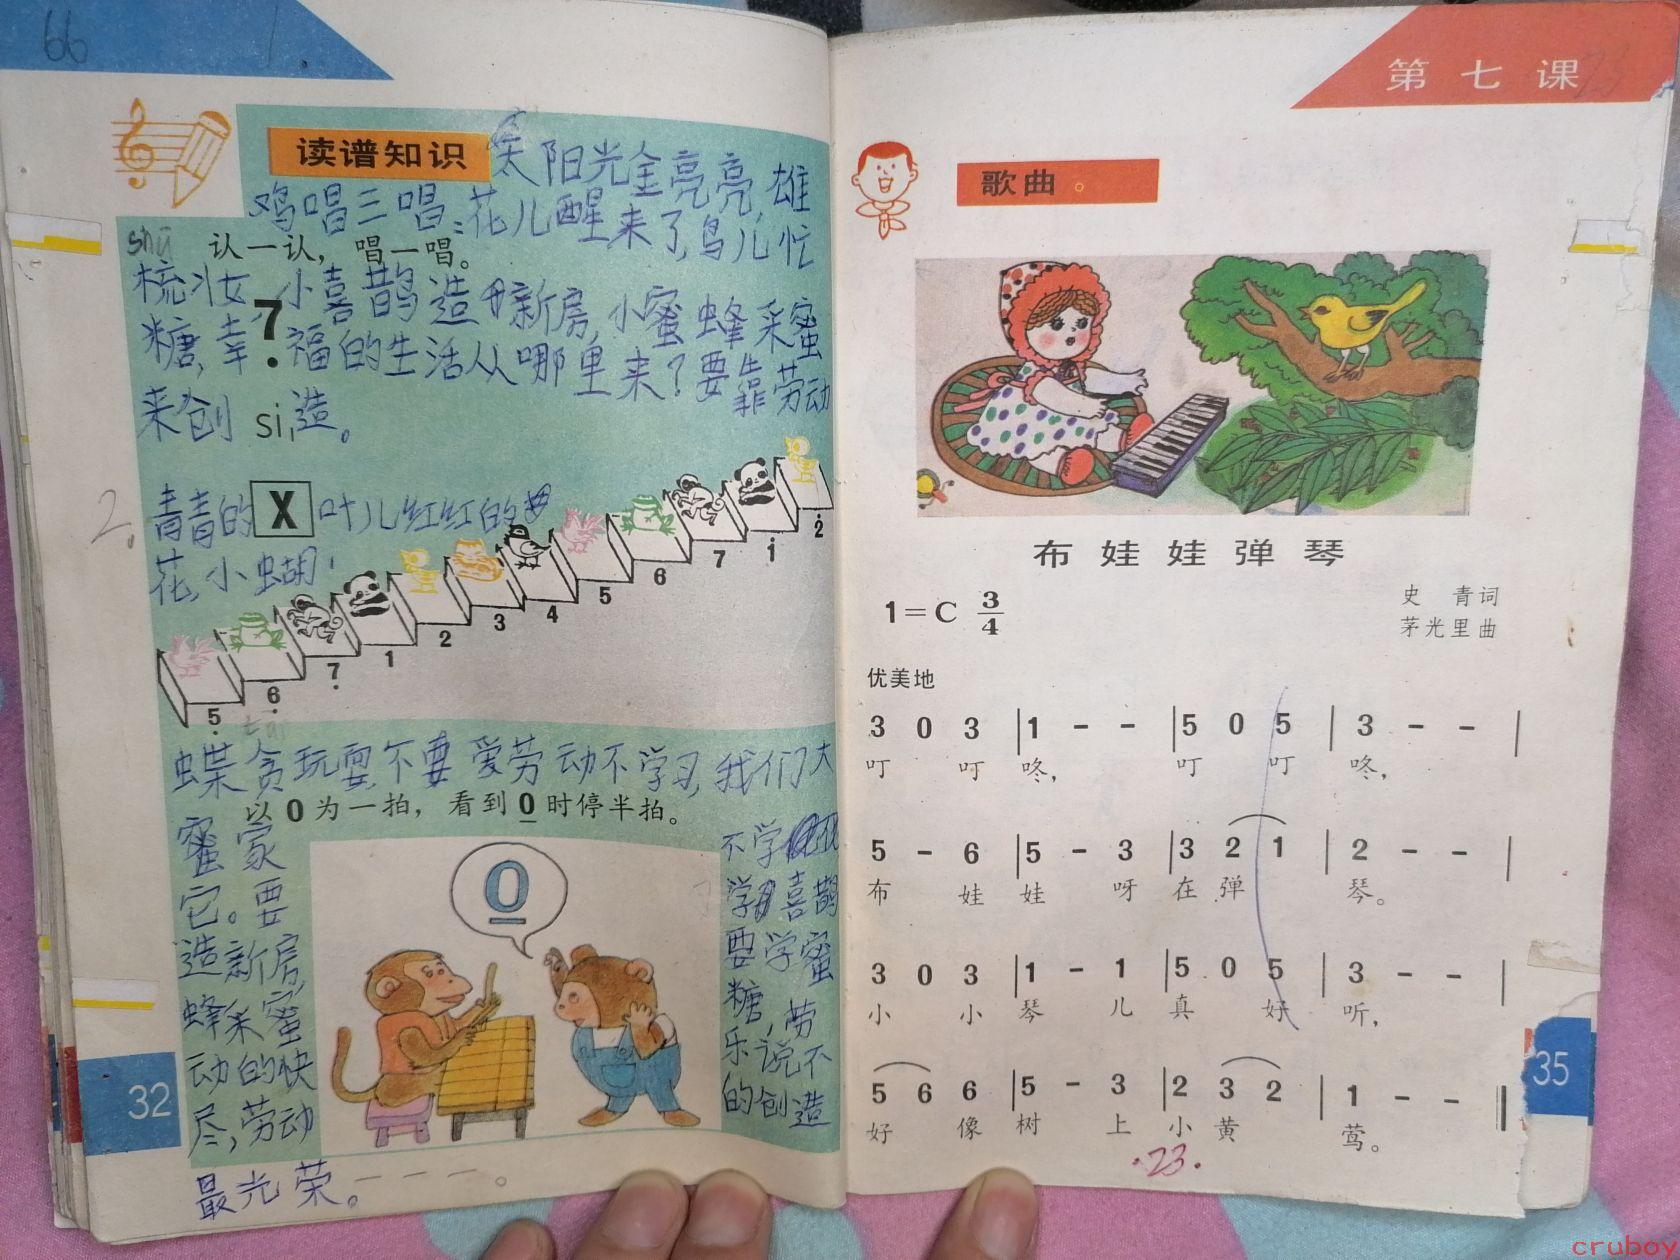 66
1.
读谱知识
太阳光金亮亮,雄
鸡唱三唱:花儿醒来了,鸟儿忙
shū
认一认, 唱一唱。
梳妆,小喜鹊造新房,小蜜蜂采蜜
7
糖,幸福的生活从哪里来?要靠劳动
来创造。
si
2.
青青的叶儿红红的
X
花,小蝴
5 6 7 1 2 3 4 5 6 7 1 2
蝶贪玩耍不要爱劳动不学习,我们大
以 0 为一拍, 看到 0 时停半拍。
不学
学习喜鹊
它。要
造新房
要学蜜
蜂采蜜
糖,劳
动的快
乐说不
尽,劳动
的创造
最光荣。
0
32
第七课
23
歌曲。
布娃娃弹琴
1=C 3/4
史 青词
茅光里曲
优美地
3 0 3 | 1 - - | 5 0 5 | 3 - - |
叮 叮 咚, 叮 叮 咚,
5 - 6 | 5 - 3 | 3 2 1 | 2 - - |
布 娃 娃 呀 在 弹 琴。
3 0 3 | 1 - 1 | 5 0 5 | 3 - - |
小 小 琴 儿 真 好 听,
5 6 6 | 5 - 3 | 2 3 2 | 1 - - ‖
好 像 树 上 小 黄 莺。
.23.
35
cruboy